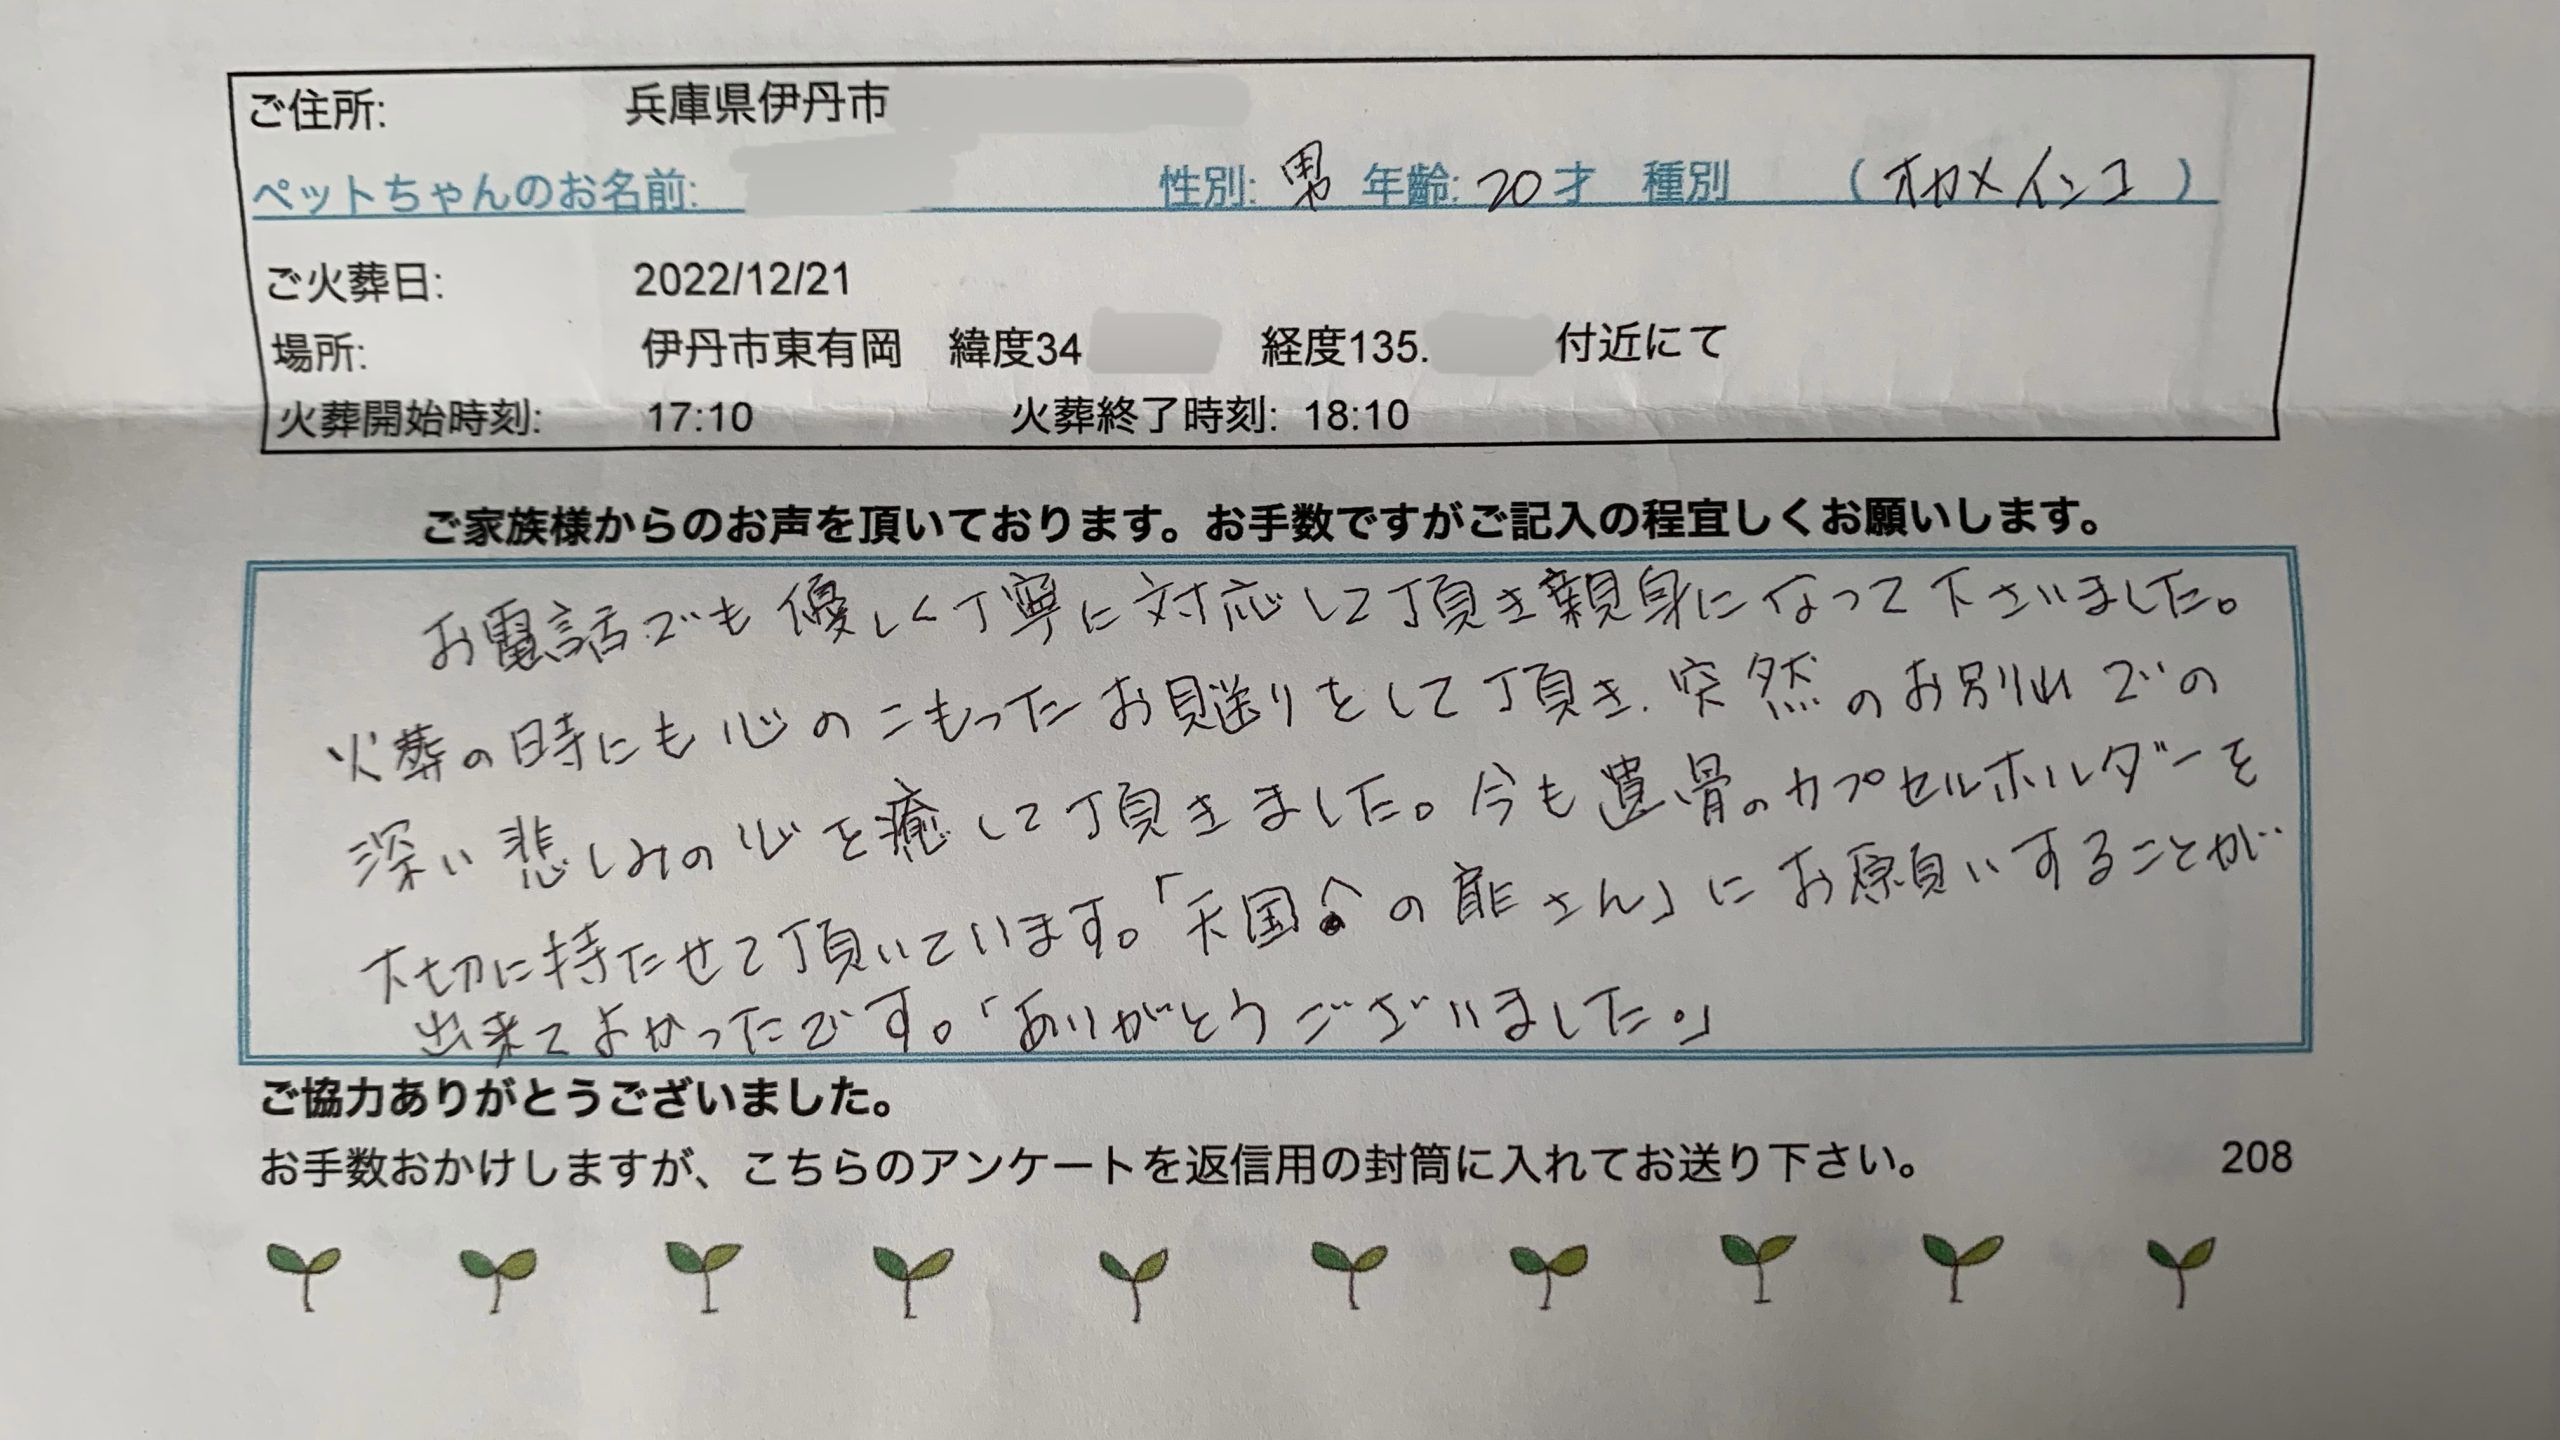 ご住所: 兵庫県伊丹市
ペットちゃんのお名前: 性別: 男 年齢: 20才 種別 (オカメインコ)
ご火葬日: 2022/12/21
場所: 伊丹市東有岡 緯度34 経度135. 付近にて
火葬開始時刻: 17:10 火葬終了時刻: 18:10
ご家族様からのお声を頂いております。お手数ですがご記入の程宜しくお願いします。
お電話でも優しく丁寧に対応して頂き親身になって下さいました。
火葬の時にも心のこもったお見送りをして頂き、突然のお別れでの
深い悲しみの心を癒して頂きました。今も遺骨のカプセルホルダーを
大切に持たせて頂いています。「天国への扉さん」にお願いすることが
出来てよかったです。「ありがとうございました。」
ご協力ありがとうございました。
お手数おかけしますが、こちらのアンケートを返信用の封筒に入れてお送り下さい。 208